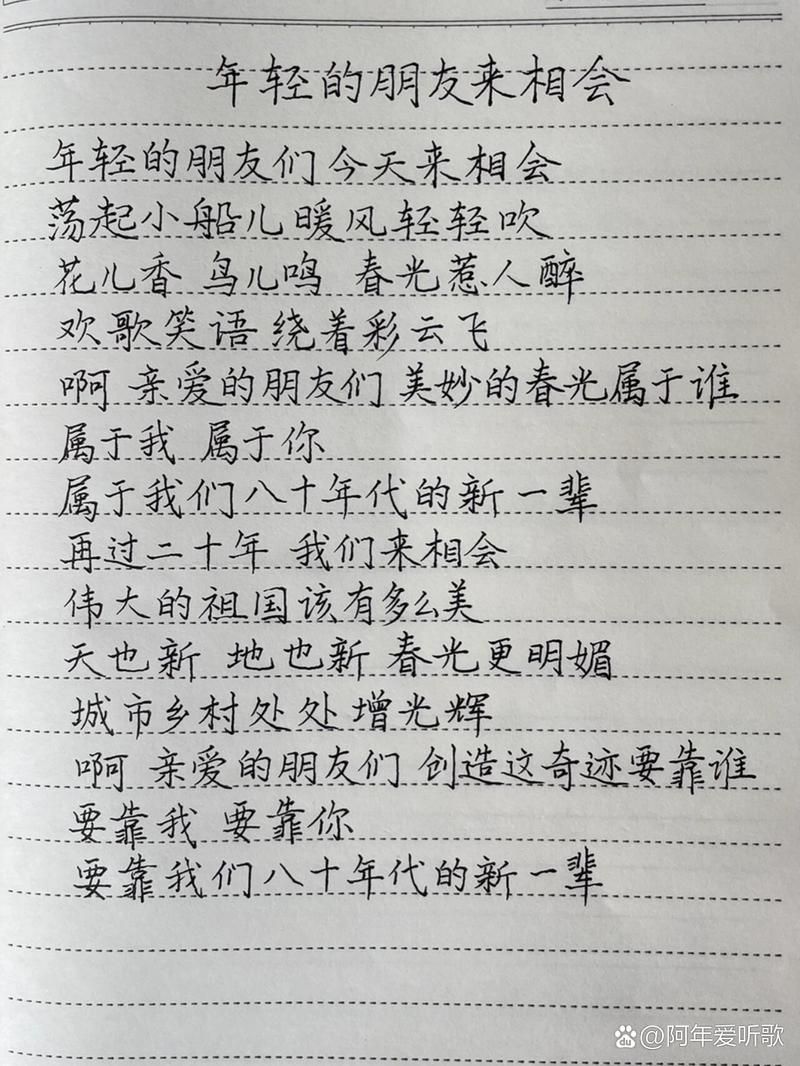 年轻的朋友来相会
年轻的朋友们今天来相会
荡起小船儿暖风轻轻吹
花儿香 鸟儿鸣 春光惹人醉
欢歌笑语绕着彩云飞
啊 亲爱的朋友们 美妙的春光属于谁
属于我 属于你
属于我们八十年代的新一辈
再过二十年 我们来相会
伟大的祖国该有多么美
天也新 地也新 春光更明媚
城市乡村处处增光辉
啊 亲爱的朋友们 创造这奇迹要靠谁
要靠我 要靠你
要靠我们八十年代的新一辈
du @阿年爱听歌